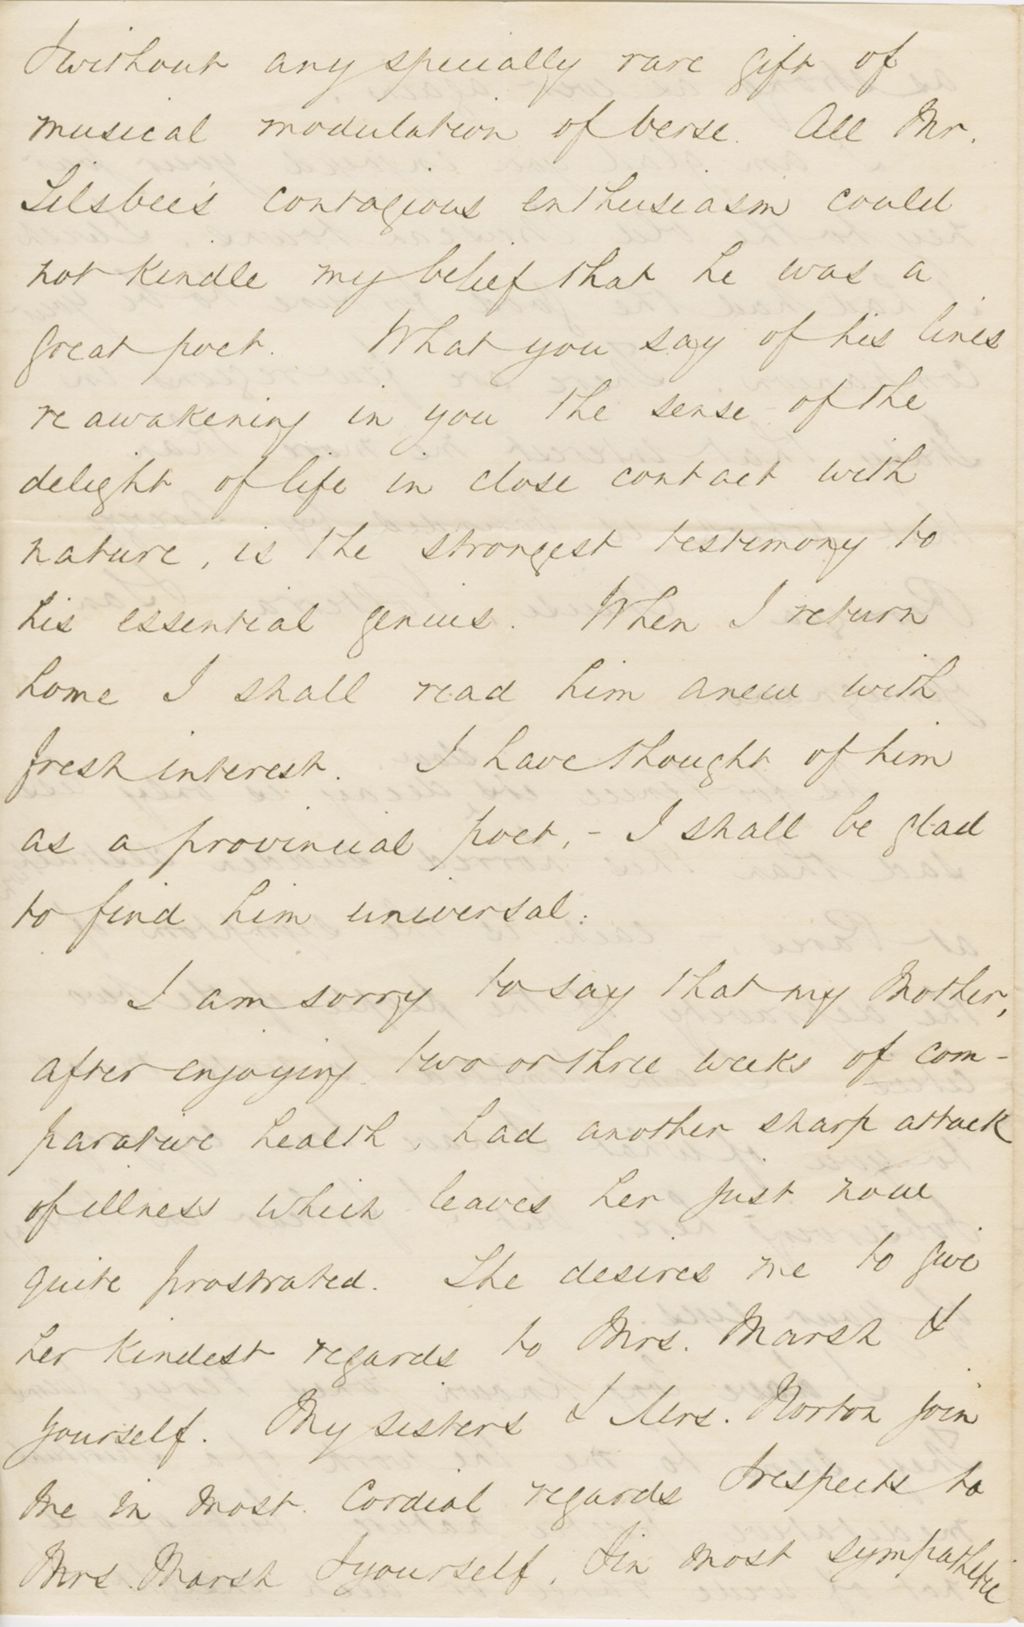 & without any specially rare gift of
musical modulation of verse. All Mr.
Silsbee's contagious enthusiasm could
not kindle my belief that he was a
great poet. What you say of his lines
reawakening in you the sense of the
delight of life in close contact with
nature, is the strongest testimony to
his essential genius. When I return
home I shall read him anew with
fresh interest. I have thought of him
as a provincial poet, - I shall be glad
to find him universal.
I am sorry to say that my Mother,
after enjoying two or three weeks of com-
parative health, had another sharp attack
of illness which leaves her just now
quite prostrated. She desires me to give
her kindest regards to Mrs. Marsh &
yourself. My sisters & Mrs. Norton join
me in most cordial regards & respects to
Mrs. Marsh & yourself, & in most sympathetic